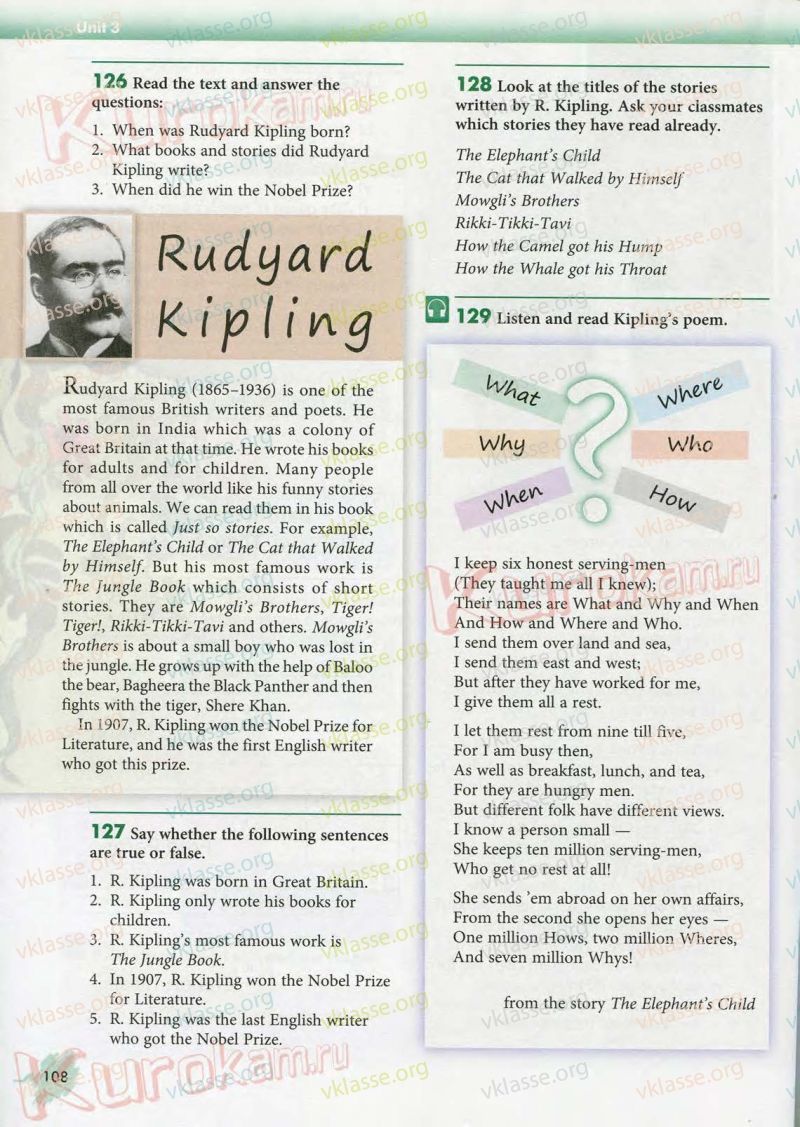 Unit 3
126 Read the text and answer the
questions:
1. When was Rudyard Kipling born?
2. What books and stories did Rudyard
Kipling write?
3. When did he win the Nobel Prize?
Rudyard
Kipling
Rudyard Kipling (1865–1936) is one of the
most famous British writers and poets. He
was born in India which was a colony of
Great Britain at that time. He wrote his books
for adults and for children. Many people
from all over the world like his funny stories
about animals. We can read them in his book
which is called Just so stories. For example,
The Elephant's Child or The Cat that Walked
by Himself. But his most famous work is
The Jungle Book which consists of short
stories. They are Mowgli's Brothers, Tiger!
Tiger!, Rikki-Tikki-Tavi and others. Mowgli's
Brothers is about a small boy who was lost in
the jungle. He grows up with the help of Baloo
the bear, Bagheera the Black Panther and then
fights with the tiger, Shere Khan.
In 1907, R. Kipling won the Nobel Prize for
Literature, and he was the first English writer
who got this prize.
127 Say whether the following sentences
are true or false.
1. R. Kipling was born in Great Britain.
2. R. Kipling only wrote his books for
children.
3. R. Kipling's most famous work is
The Jungle Book.
4. In 1907, R. Kipling won the Nobel Prize
for Literature.
5. R. Kipling was the last English writer
who got the Nobel Prize.
108
128 Look at the titles of the stories
written by R. Kipling. Ask your classmates
which stories they have read already.
The Elephant's Child
The Cat that Walked by Himself
Mowgli's Brothers
Rikki-Tikki-Tavi
How the Camel got his Hump
How the Whale got his Throat
129 Listen and read Kipling's poem.
What
?
Where
Why
Who
When
How
I keep six honest serving-men
(They taught me all I knew);
Their names are What and Why and When
And How and Where and Who.
I send them over land and sea,
I send them east and west;
But after they have worked for me,
I give them all a rest.
I let them rest from nine till five,
For I am busy then,
As well as breakfast, lunch, and tea,
For they are hungry men.
But different folk have different views.
I know a person small —
She keeps ten million serving-men,
Who get no rest at all!
She sends 'em abroad on her own affairs,
From the second she opens her eyes —
One million Hows, two million Wheres,
And seven million Whys!
from the story The Elephant's Child
Kurokam.ru
vklasse.org